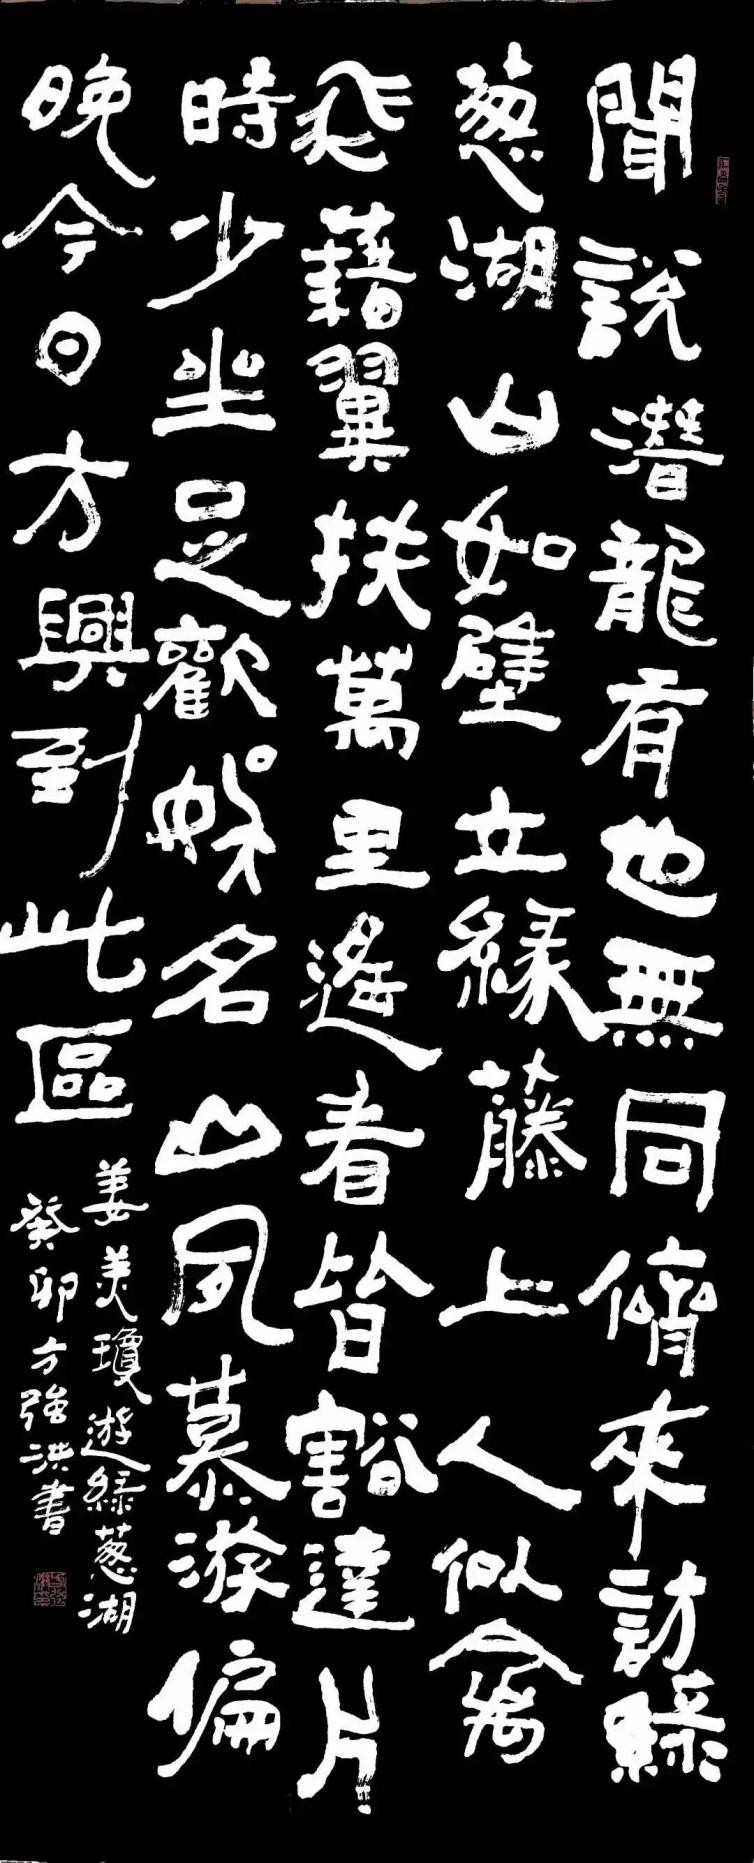 聞説潛龍有也無同儕來訪綠
葱湖山如壁立緣藤上人似禽
飛藉翼扶萬里遙看皆豁達片
時少坐足歡娛名山夙慕游偏
晚今日方興到此區
姜美瓊遊綠葱湖
癸卯方強洪書